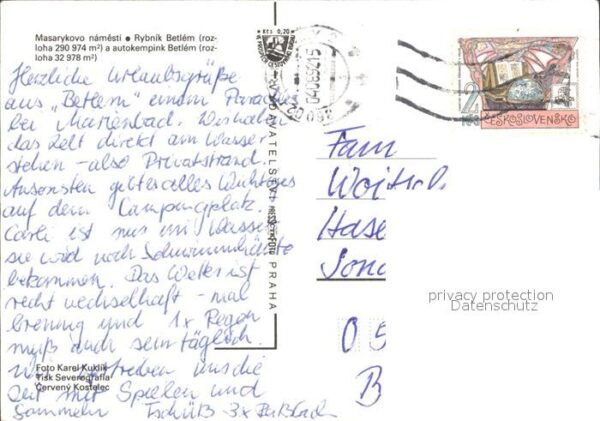 Masarykovo náměstí ● Rybník Betlém (roz-
loha 290 974 m²) a autokempink Betlém (roz-
loha 32 978 m²)
Herzliche Urlaubsgrüße
aus „Betlem" einem Paradies
bei Marienbad. Wir haben
das Zelt direkt am Wasser
stehen - also Privatstrand.
Ansonsten gibt es alles Wichtige
auf dem Campingplatz.
ist nur im Wasser
sie wird noch Schwimmhäute
bekommen. Das Wetter ist
recht wechselhaft - mal
brennig und 1x Regen
muß auch sein täglich.
uns die
Zeit mit Spielen und
Sammeln Tschüß
Foto Karel Kuklík
Tisk Severografia
Červený Kostelec
Kčs 0,20
VYDAVATELSTVÍ PRESSFOTO PRAHA
ČESKOSLOVENSKO
Fam
Hase
privacy protection
Datenschutz
0 5
B